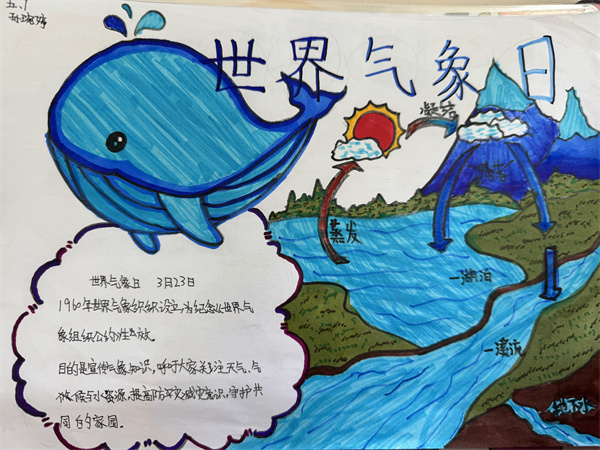 五、1
世界气象日
凝结
蒸发
湖泊
溪流
地下水
世界气象日 3月23日
1960年世界气象组织设立,为纪念《世界气
象组织公约》生效。
目的是宣传气象知识,呼吁大家关注天气、气
候与水资源,提高防灾减灾意识,守护共
同的家园。